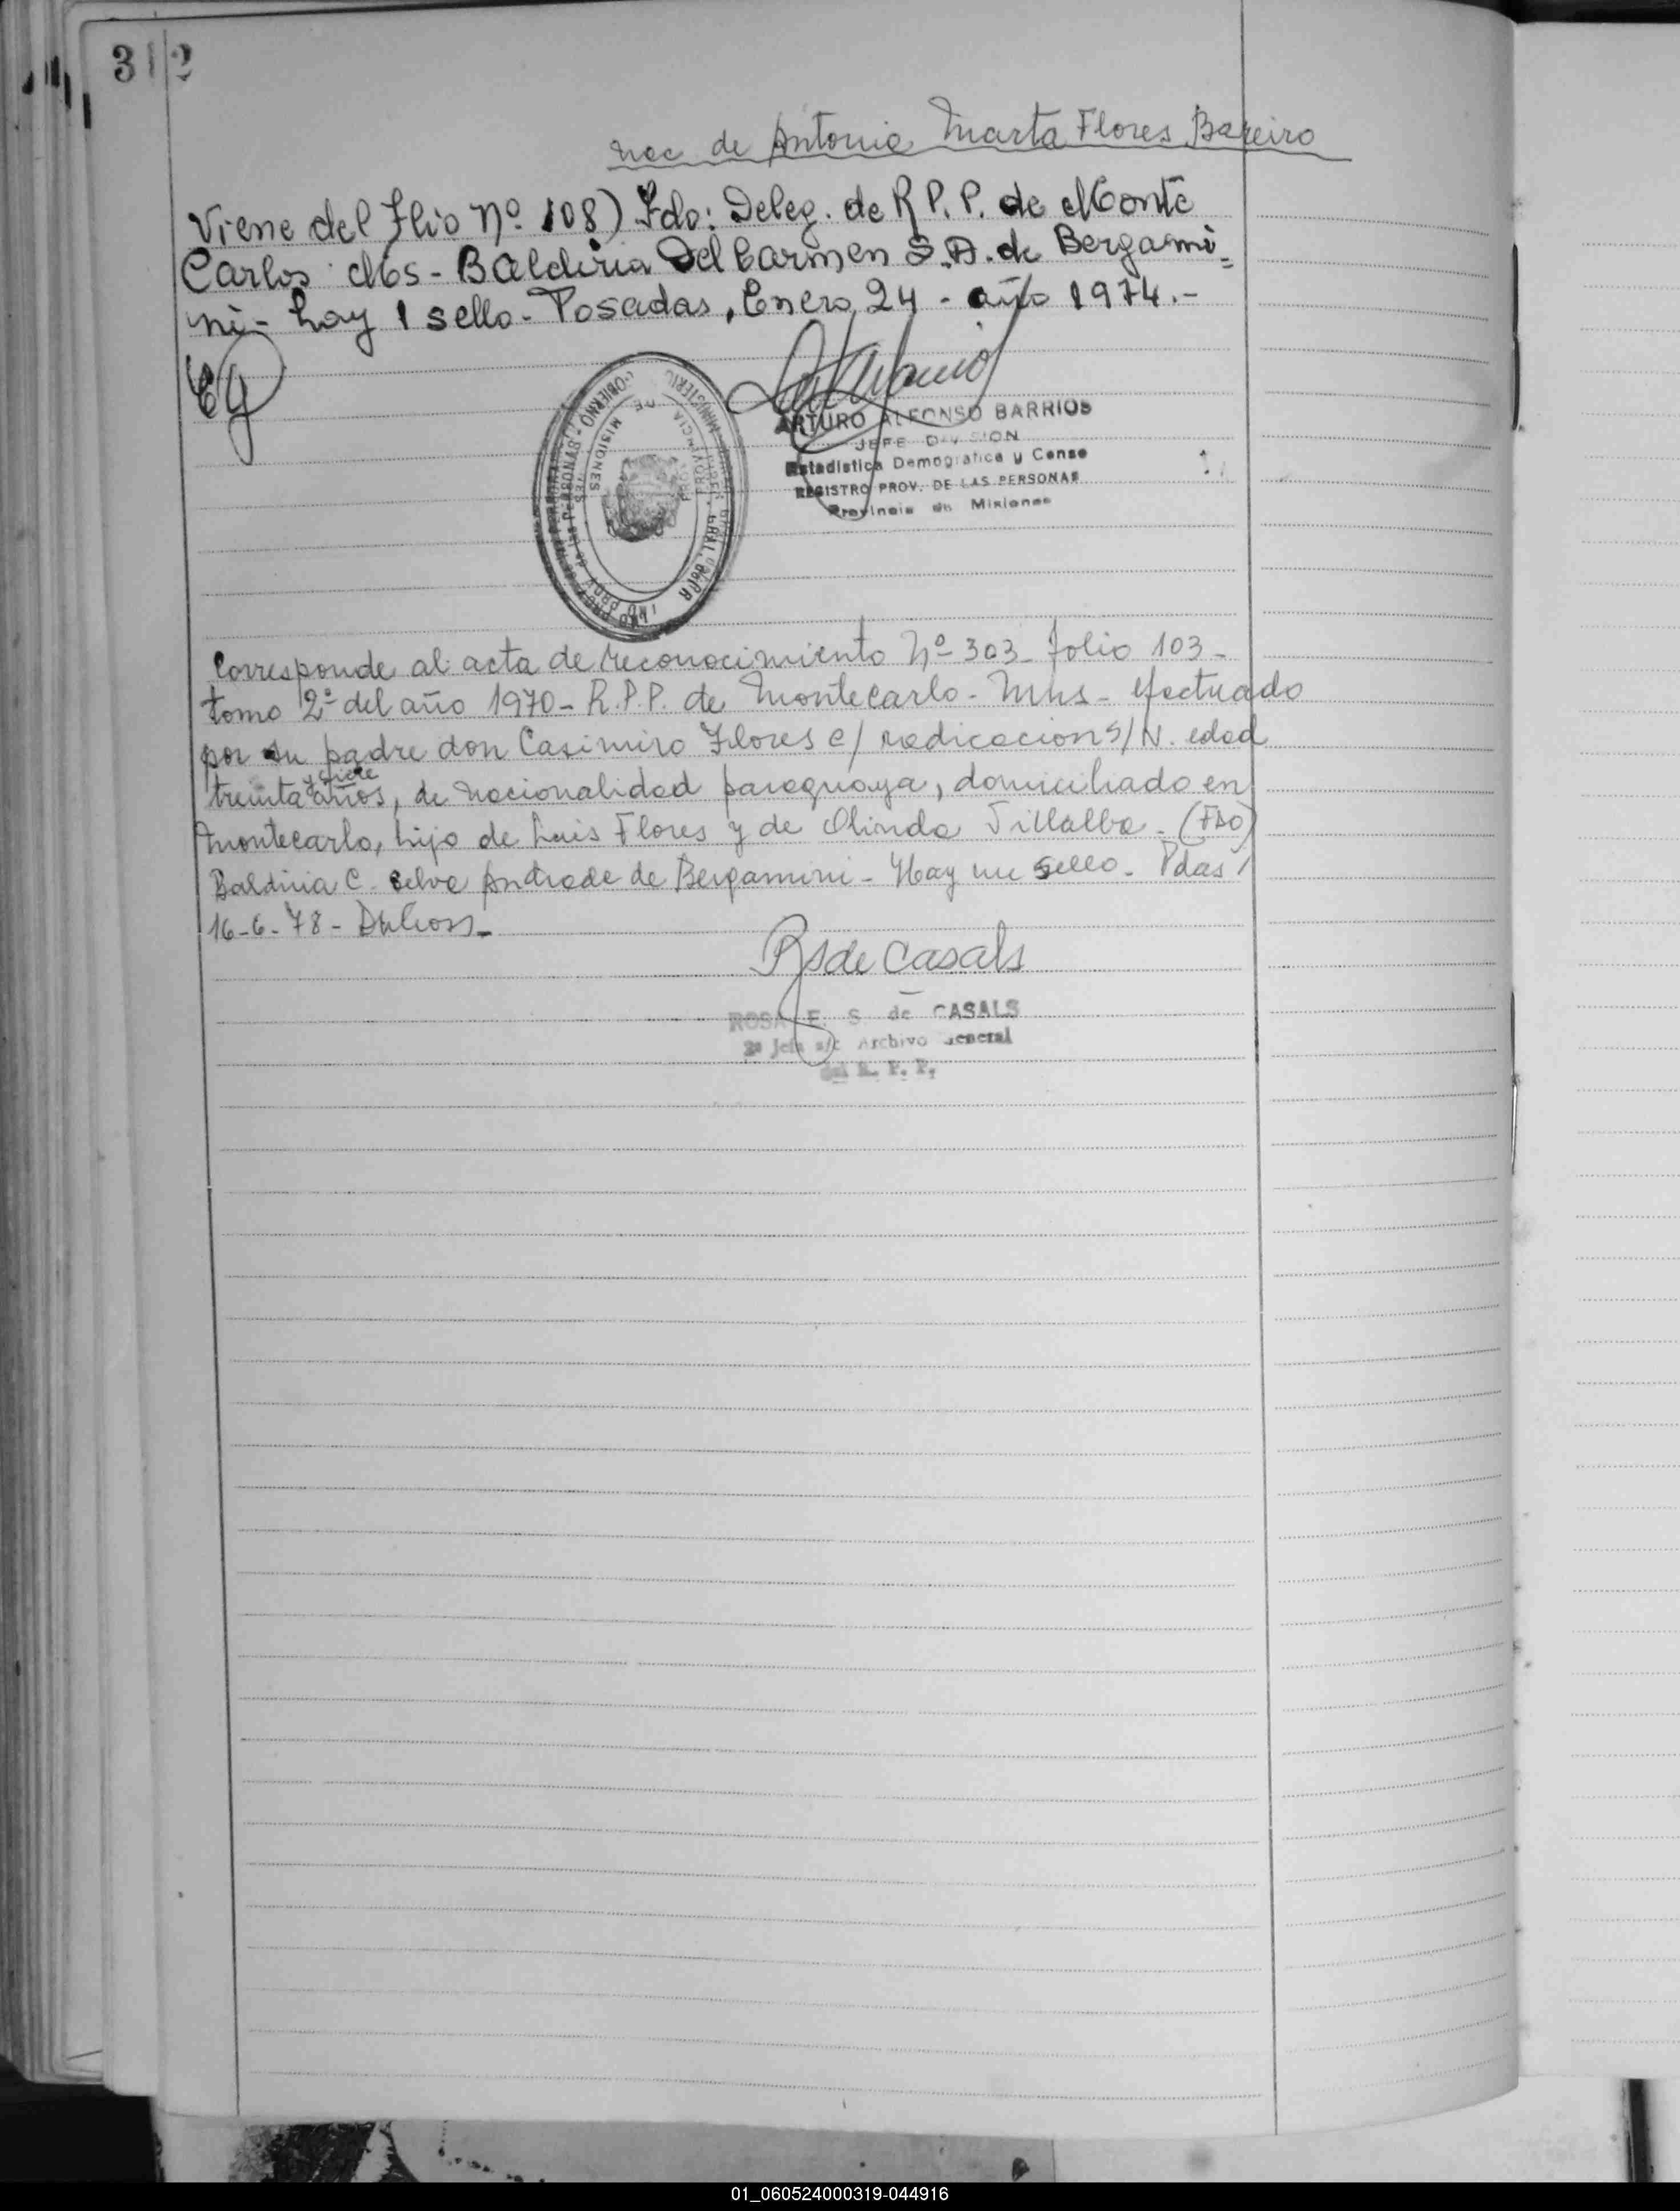 312
nac de Antonia Marta Flores Bareiro
Viene del Flio Nº 108) Fdo: Deleg. de R P. P. de Monte
Carlos Mos - Baldiria Del Carmen S. A. de Bergami=
ni - hay 1 sello - Posadas, Enero, 24 - año 1974.-
ARTURO ALFONSO BARRIOS
JEFE DIVISION
Estadistica Demografica y Censo
REGISTRO PROV. DE LAS PERSONAS
Provincia de Misiones
MINISTERIO GOBIERNO
PROVINCIA DE MISIONES
Corresponde al acta de reconocimiento Nº 303 - folio 103 -
tomo 2º del año 1970 - R.P.P. de Montecarlo - Mns - efectuado
por su padre don Casimiro Flores c/ radicacion S/N. edad
y siete
treinta años, de nacionalidad paraguaya, domiciliado en
Montecarlo, hijo de Luis Flores y de Olinda Villalba - (FDO)
Baldiria C. Selva Andrade de Bergamini - Hay un sello - Pdas/
16-6-78 -
RS de Casals
ROSA E. S. de CASALS
2ª Jefa a/c Archivo General
del R. P. P.
01_060524000319-044916